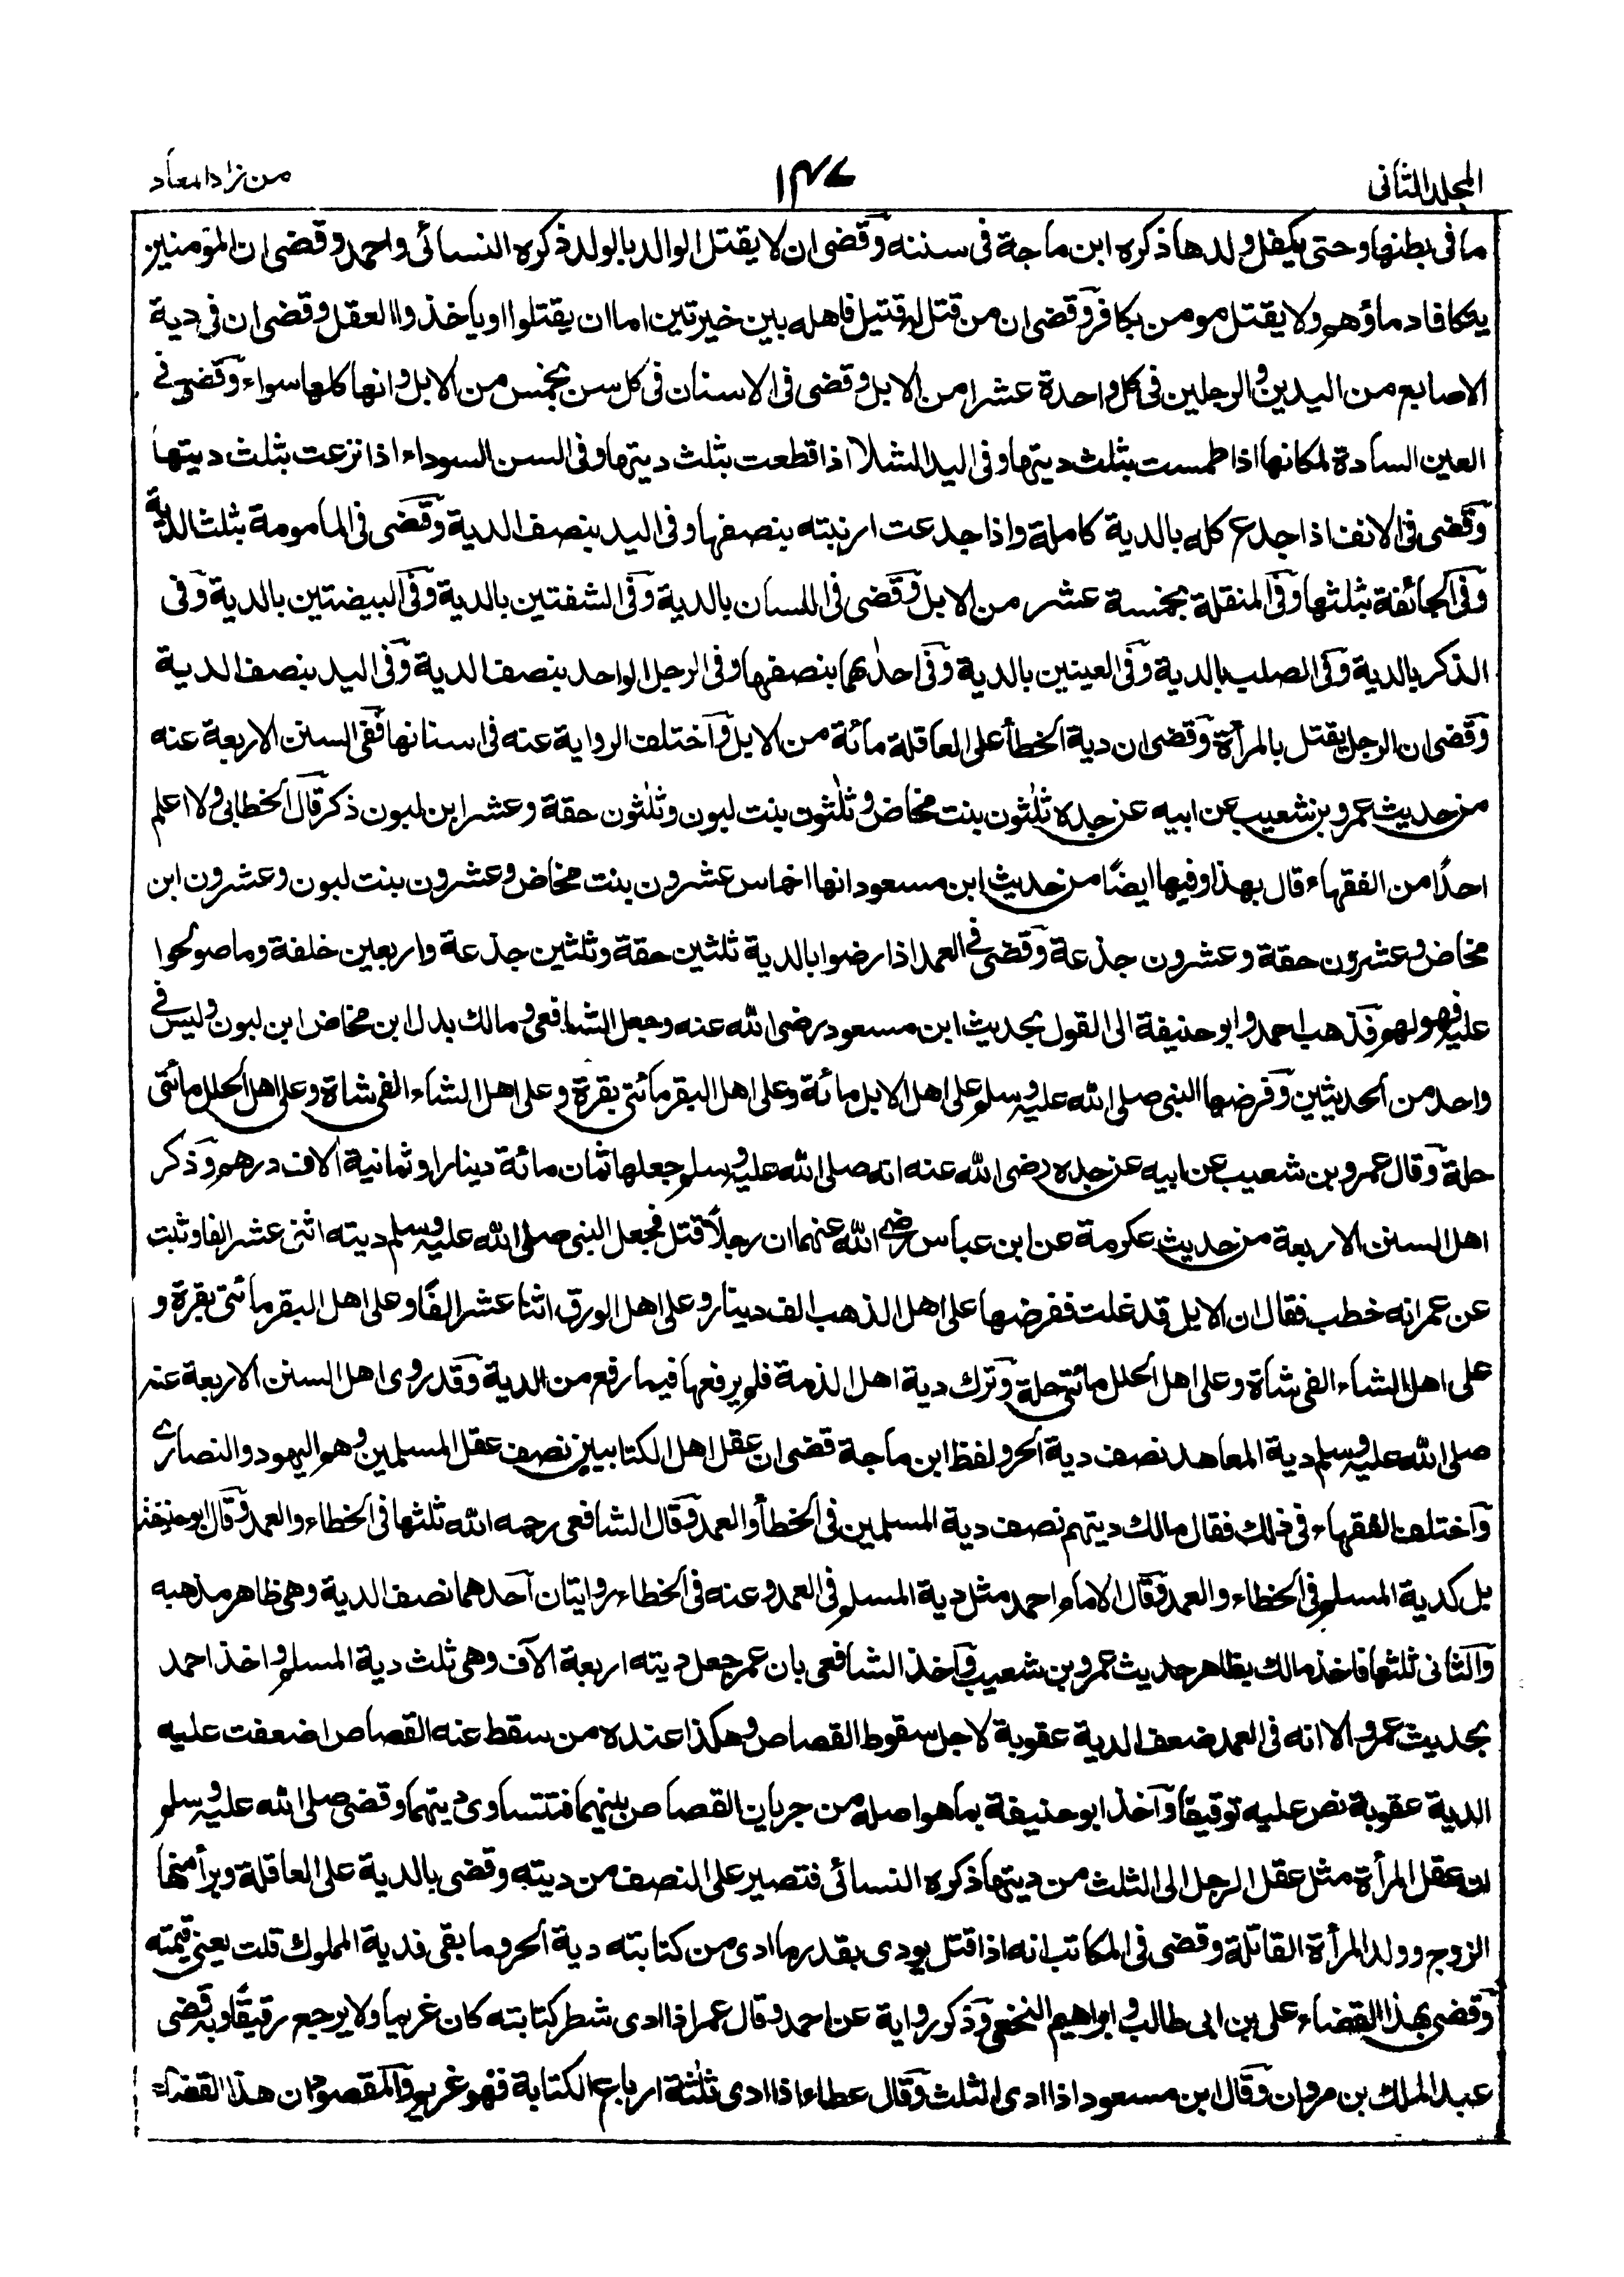 المجلد الثانى
١٣٧
من زاد المعاد
ما فى بطنها وحتى يكفل ولدها ذكره ابن ماجة فى سننه وقضى ان لا يقتل الوالد بالولد ذكره النسائى واحمد وقضى ان المؤمنين
يتكافا دماؤهم ولا يقتل مومن بكافر وقضى ان من قتل له قتيل فاهله بين خيرتين اما ان يقتلوا او ياخذوا العقل وقضى ان فى دية
الاصابع من اليدين والرجلين فى كل واحدة عشرا من الابل وقضى فى الاسنان فى كل سن بخمس من الابل وانها كلها سواء وقضى فى
العين السادة لمكانها اذا طمست بثلث ديتها وفى اليد الشلا اذا قطعت بثلث ديتها وفى السن السوداء اذا نزعت بثلث ديتها
وقضى فى الانف اذا جدع كله بالدية كاملة واذا جدعت ارنبته بنصفها وفى اليد بنصف الدية وقضى فى المامومة بثلث الدية
وفى الجائفة بثلثها وفى المنقلة بخمسة عشر من الابل وقضى فى اللسان بالدية وفى الشفتين بالدية وفى البيضتين بالدية وفى
الذكر بالدية وفى الصلب بالدية وفى العينين بالدية وفى احدٰهما بنصفها وفى الرجل الواحد بنصف الدية وفى اليد بنصف الدية
وقضى ان الرجل يقتل بالمرأة وقضى ان دية الخطأ على العاقلة مائة من الابل واختلف الرواية عنه فى اسنانها ففى السنن الاربعة عنه
من حديث عمرو بن شعيب عن ابيه عن جده ثلٰثون بنت مخاض وثلٰثون بنت لبون وثلٰثون حقة وعشر ابن لبون ذكر قال الخطابى ولا اعلم
احدًا من الفقهاء قال بهذا وفيها ايضًا من حديث ابن مسعود انها اخماس عشرون بنت مخاض وعشرون بنت لبون وعشرون ابن
مخاض وعشرون حقة وعشرون جذعة وقضى فى العمد اذا رضوا بالدية ثلثين حقة وثلثين جذعة واربعين خلفة وما صولحوا
عليه فهو لهم فذهب احمد وابو حنيفة الى القول بحديث ابن مسعود رضى الله عنه وجعل الشافعى ومالك بدل ابن مخاض ابن لبون وليس فى
واحد من الحديثين وفرضها النبى صلى الله عليه وسلم على اهل الابل مائة وعلى اهل البقر مائتى بقرة وعلى اهل الشاء الفى شاة وعلى اهل الحلل مائتى
حلة وقال عمرو بن شعيب عن ابيه عن جده رضى الله عنه انه صلى الله عليه وسلم جعلها ثمان مائة دينار او ثمانية الاف درهم وذكر
اهل السنن الاربعة من حديث عكرمة عن ابن عباس رضى الله عنهما ان رجلًا قتل فجعل النبى صلى الله عليه وسلم ديته اثنى عشر الفا وثبت
عن عمر انه خطب فقال ان الابل قد غلت ففرضها على اهل الذهب الف دينار وعلى اهل الورق اثنا عشر الفًا وعلى اهل البقر مائتى بقرة و
على اهل الشاء الفى شاة وعلى اهل الحلل مائتى حلة وترك دية اهل الذمة فلم يرفعها فيما رفع من الدية وقد روى اهل السنن الاربعة عنه
صلى الله عليه وسلم دية المعاهد نصف دية الحر ولفظ ابن ماجة قضى ان عقل اهل الكتابيين نصف عقل المسلمين وهم اليهود والنصارى
واختلف الفقهاء فى ذلك فقال مالك ديتهم نصف دية المسلمين فى الخطأ والعمد وقال الشافعى رحمه الله ثلثها فى الخطاء والعمد وقال ابو حنيفة
بل كدية المسلم فى الخطاء والعمد وقال الامام احمد مثل دية المسلم فى العمد وعنه فى الخطاء روايتان احدهما نصف الدية وهى ظاهر مذهبه
والثانى ثلثها فاخذ مالك بظاهر حديث عمرو بن شعيب واخذ الشافعى بان عمر جعل ديته اربعة الآف وهى ثلث دية المسلم واخذ احمد
بحديث عمرو الا انه فى العمد ضعف الدية عقوبة لاجل سقوط القصاص وهكذا عنده من سقط عنه القصاص اضعفت عليه
الدية عقوبة نص عليه توقيفا وآخذ ابو حنيفة بما هو اصله من جريان القصاص بينهما فتتساوى ديتهما وقضى صلى الله عليه وسلم
ان عقل المرأة مثل عقل الرجل الى الثلث من ديتها ذكره النسائى فتصير على النصف من ديته وقضى بالدية على العاقلة وبرأ منها
الزوج وولد المرأة القاتلة وقضى فى المكاتب انه اذا قتل يودى بقدر ما ادى من كتابته دية الحر وما بقى فدية المملوك قلت يعنى قيمته
وقضى بهذا القضاء على بن ابى طالب وابراهيم النخعى وذكر رواية عن احمد وقال عمر اذا ادى شطر كتابته كان غريما ولا يرجع رقيقًا وبه قضى
عبد الملك بن مروان وقال ابن مسعود اذا ادى الثلث وقال عطاء اذا ادى ثلٰثة ارباع الكتابة فهو غريم والمقصود ان هذا القضاء